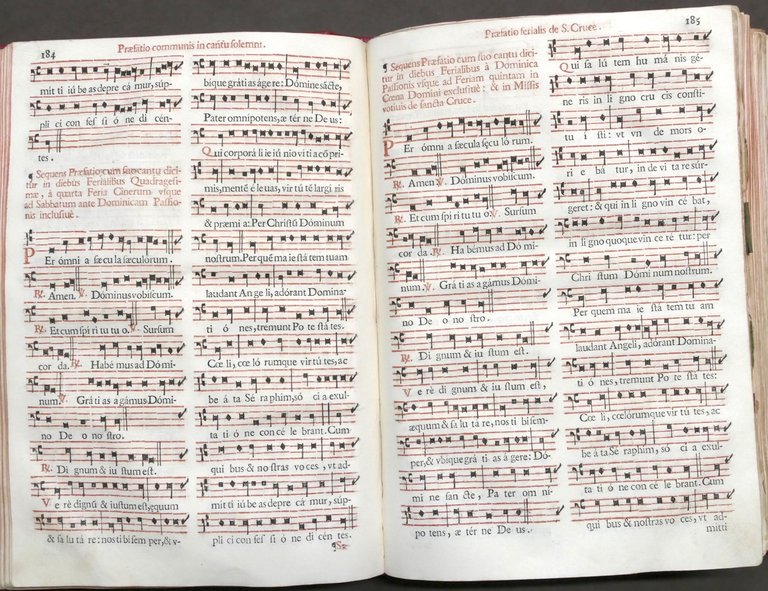 184
Præfatio communis in cantu solemni.
mit ti iu be as depre cá mur, súp-
pli ci con fes si ó ne di cén-
tes.
¶ Sequens Præfatio cum suo cantu dici
tur in diebus Ferialibus Quadragesi-
mæ, à quarta Feria Cinerum vsque
ad Sabbatum ante Dominicam Passio-
nis inclusiuè.
PEr ómni a sæ cu la sæculorum.
℟. Amen. ℣. Dóminus vobiscum.
℟. Et cum spi ri tu tu o. ℣. Sursum
cor da. ℟. Habé mus ad Dómi-
num. ℣. Grá ti as a gámus Dómi-
no De o no stro.
℟. Di gnum & iu stum est.
VE rè dignũ & iustum est, ęquum
& sa lu tá re: nos ti bi sem per, & v-
bique grátias ágere: Dómine sácte,
Pater omnipotens, æ tér ne De us:
Qui corporá li ie iú nio vi ti a cõ pri-
mis, menté e le uas, vir tú té largi ris
& præmi a: Per Christũ Dóminum
nostrum. Per qué ma ie stá tem tuam
laudant An ge li, adórant Domina-
ti ó nes, tremunt Po te stá tes.
Cœ li, cœ ló rumque vir tú tes, ac
be á ta Sé ra phim, só ci a exul-
ta ti ó ne con cé le brant. Cum
qui bus & no stras vo ces, vt ad-
mit ti iú be as depre cá mur, súp-
pli ci con fes si ó ne di cén tes.
Præfatio ferialis de S. Cruce.
185
¶ Sequens Præfatio cum suo cantu dici
tur in diebus Ferialibus à Dominica
Passionis vsque ad Feriam quintam in
Cœna Domini exclusiuè: & in Missis
votiuis de sancta Cruce.
PEr ómni a sæcula sęcu ló rum.
℟. Amen. ℣. Dóminus vobiscum.
℟. Et cum spi ri tu tu o. ℣. Sursum
cor da. ℟. Ha bémus ad Dó mi-
num. ℣. Grá ti as a gámus Dómi-
no De o no stro.
℟. Di gnum & iu stum est.
VE rè di gnum & iu stum est,
æquum & sa lu tá re, nos ti bi sem-
per, & vbique grá ti as á gere: Dó-
mi ne san cte, Pa ter om ní-
po tens, æ tér ne De us.
Qui sa lú tem hu má nis gé-
ne ris in li gno cru cis consti-
tu í sti: vt vn de mors o-
ri e bá tur, in de vi ta re súr-
geret: & qui in li gno vin cé bat,
in li gno quoque vin ce ré tur: per
Chri stum Dómi num nostrum.
Per quem ma ie stá tem tu am
laudant Angeli, adórant Domina-
ti ó nes, tremunt Po te stá tes:
Cœ li, cœlorumque vir tú tes, ac
be á ta Sé raphim, só ci a exul-
ta ti ó ne con cé le brant. Cum
qui bus & nostras vo ces, vt ad-
mitti